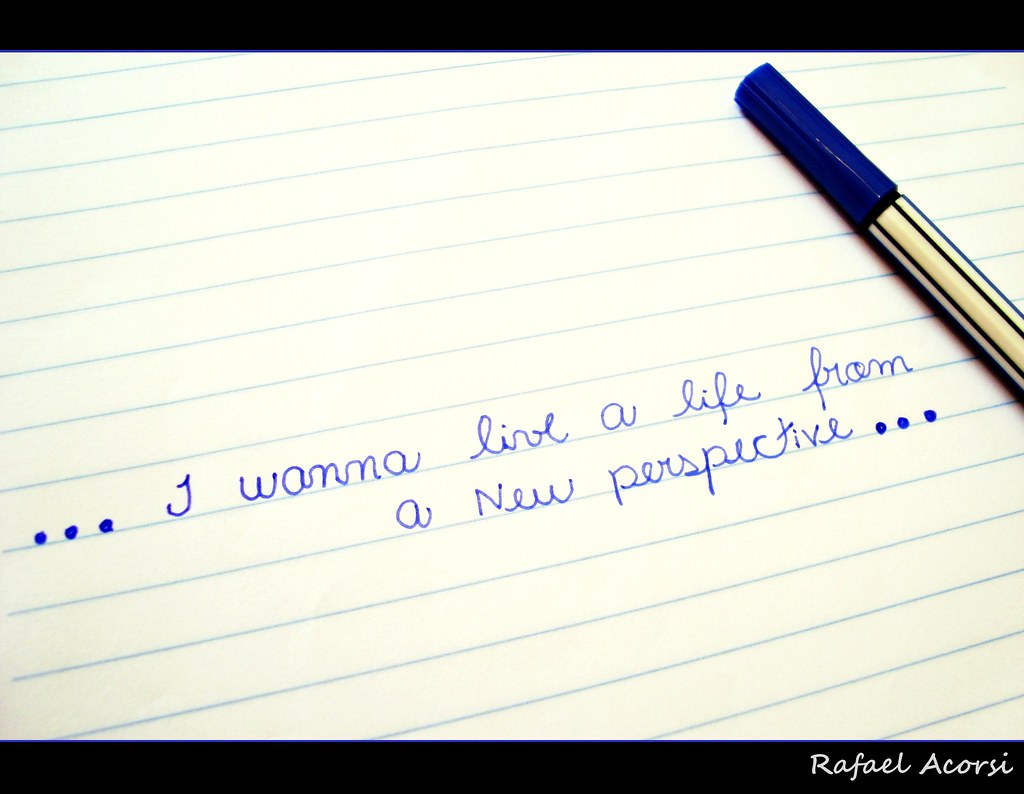 ... I wanna live a life from
a New perspective...
Rafael Acorsi